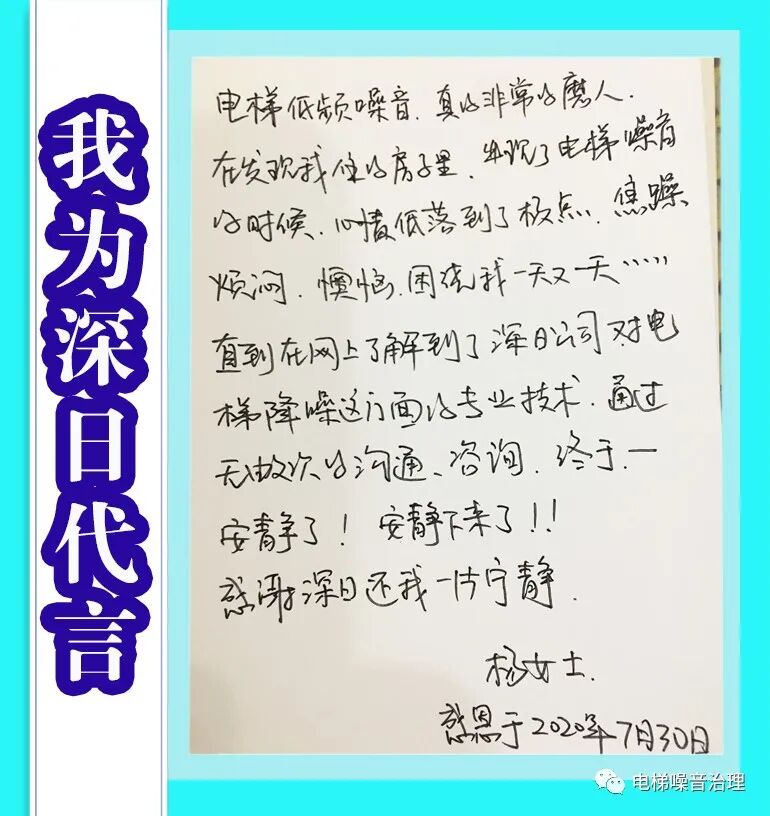 我为深日代言
电梯低频噪音，真的非常的磨人．
在发现我住的房子里，出现了电梯噪音
的时候，心情低落到了极点，焦躁
烦闷、懊恼、困绕我一天又一天……
直到在网上了解到了深日公司对电
梯降噪这方面的专业技术．通过
无数次的沟通、咨询，终于，一
安静了！安静下来了！！
感谢深日还我一片宁静．
杨女士．
感恩于2020年7月30日
电梯噪音治理